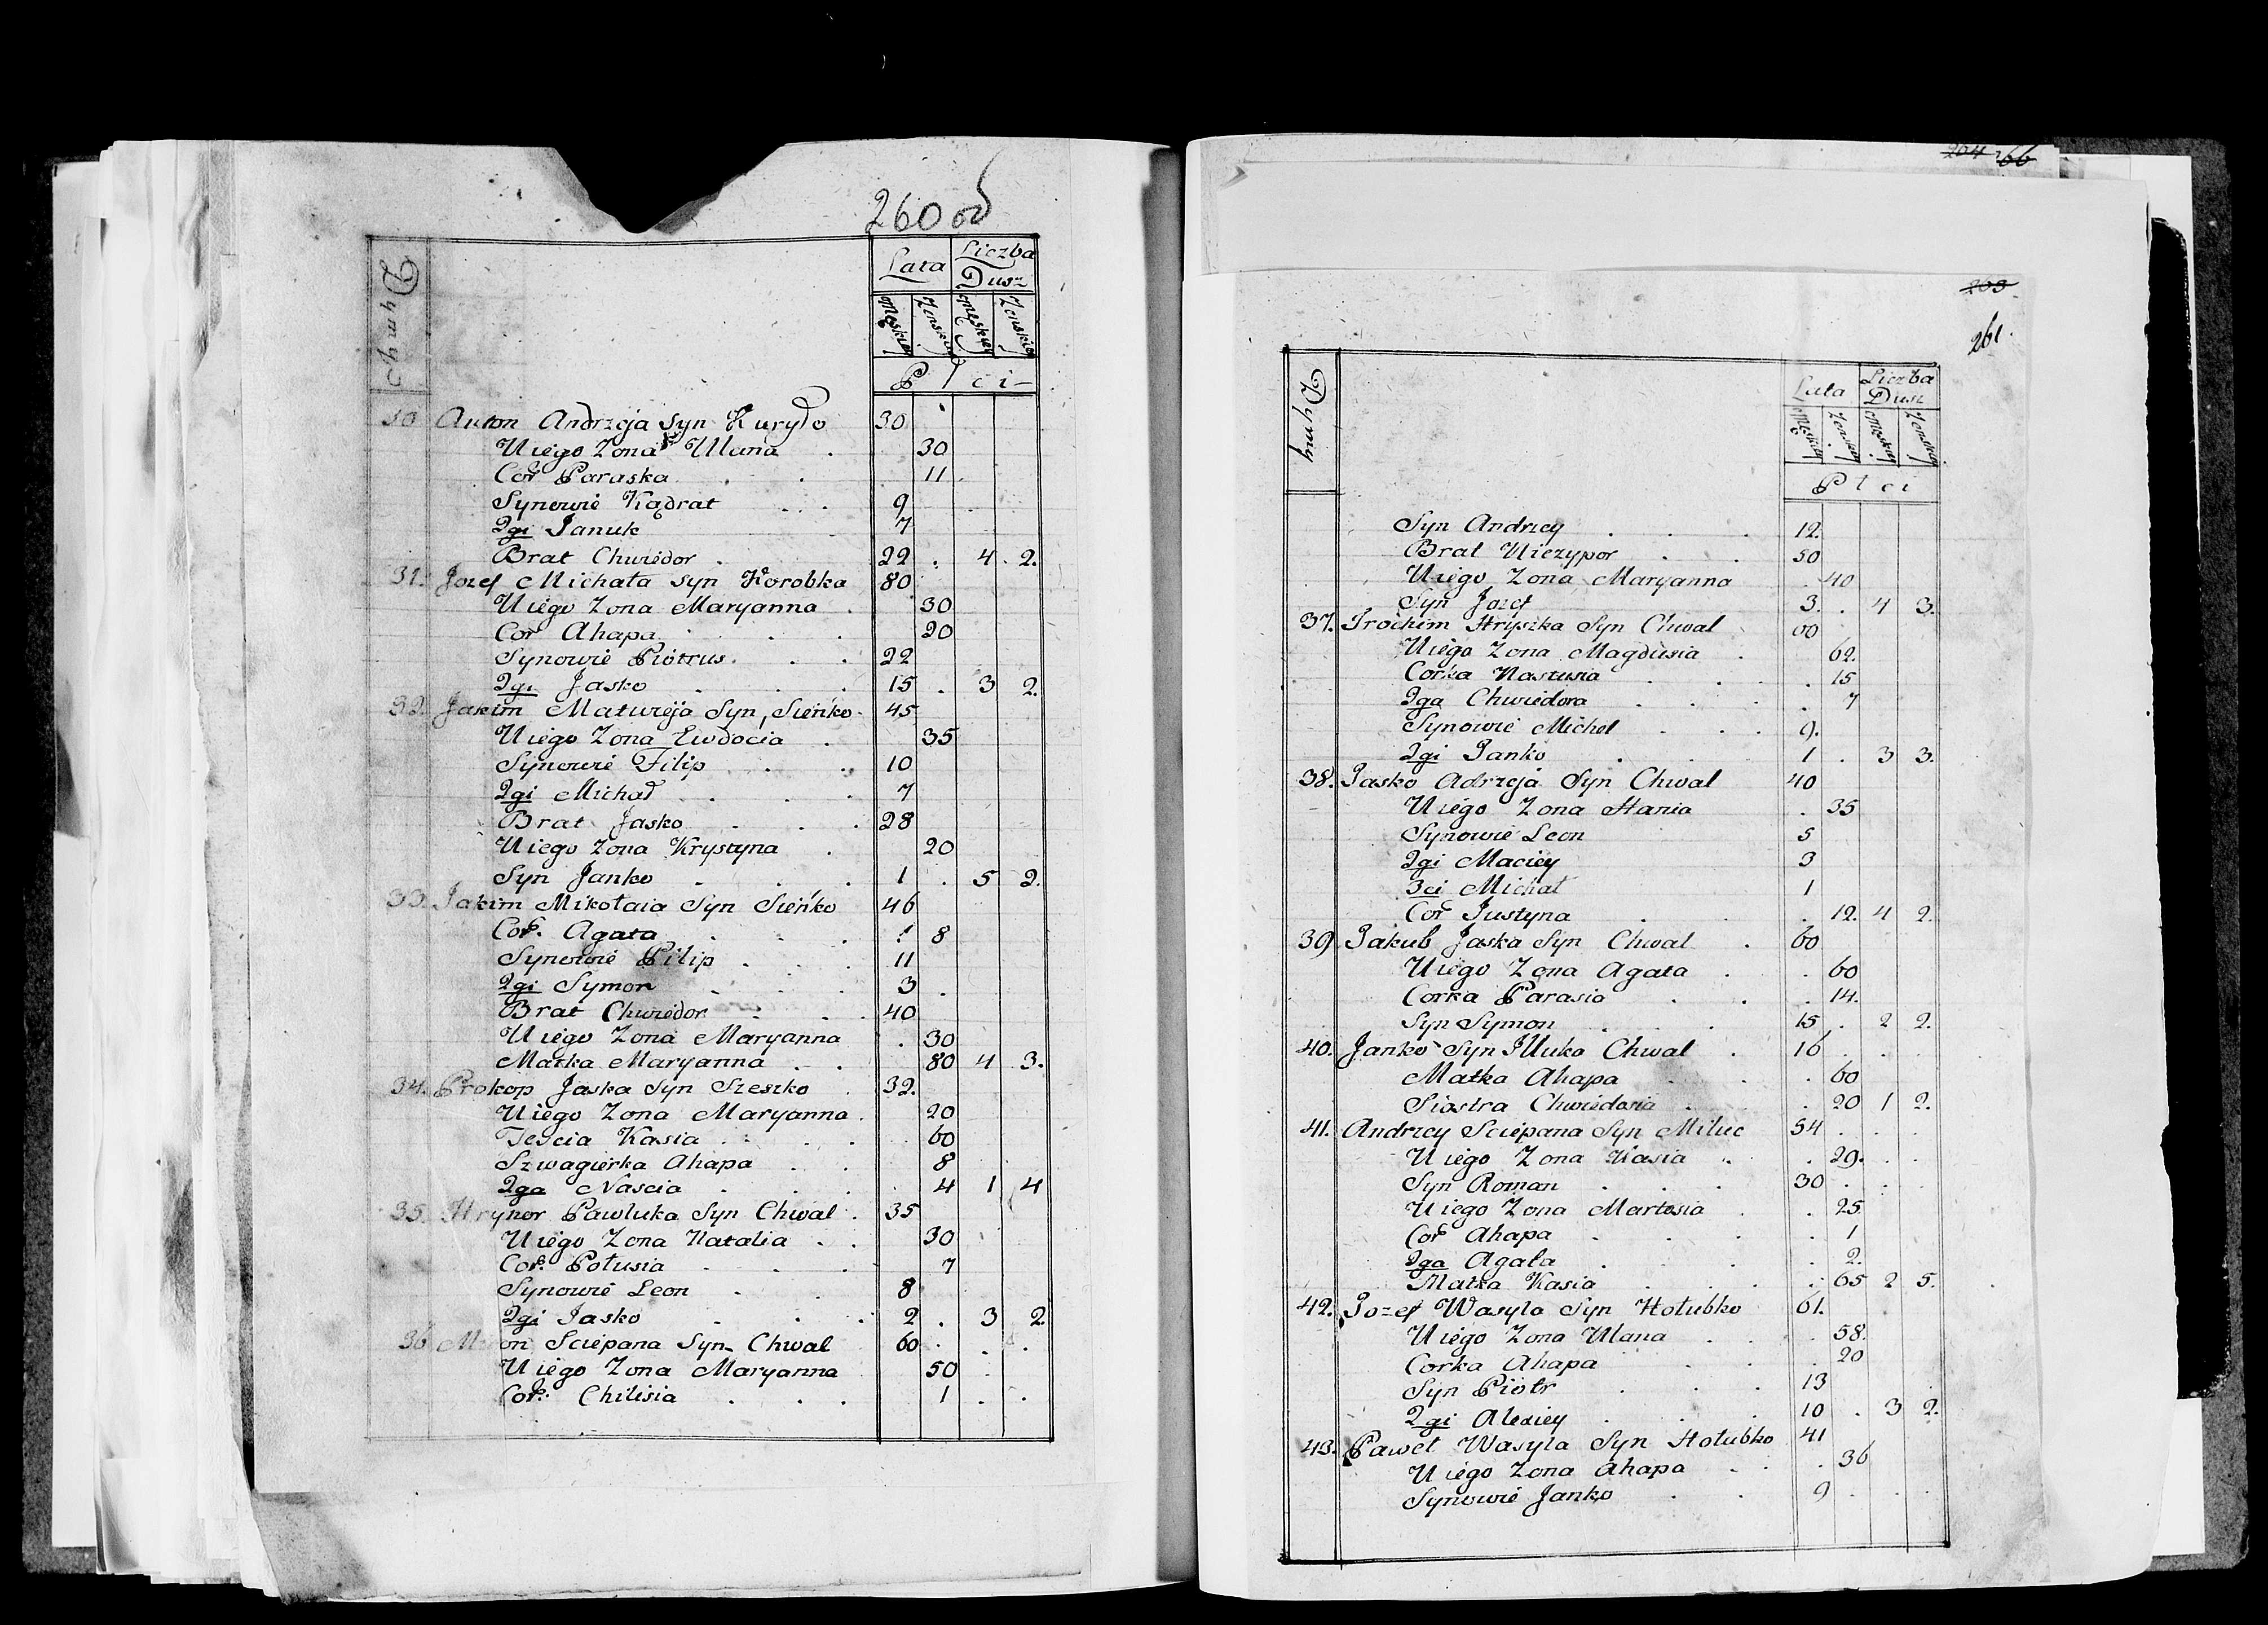 260 od
Dymy
Lata Liczba Dusz
Męskiey Zenskiey Męskiey Zenskiey
Płci
30 Anton Andrzeja Syn Kuryło 30
Uiego Zona Ulana 30
Cor Paraska 11
Synowie Kądrat 9
2gi Januk 7
Brat Chwiedor 22 4 2.
31. Jozef Michała Syn Korobka 80
Uiego Zona Maryanna 30
Cor Ahapa 20
Synowie Piotrus 22
2gi Jasko 15 3 2.
32. Jakim Matwieja Syn Sieńko 45
Uiego Zona Ewdocia 35
Synowie Filip 10
2gi Michał 7
Brat Jasko 28
Uiego Zona Krystyna 20
Syn Janko 1 5 2.
33. Jakim Mikołaia Syn Sieńko 46
Cor. Agata 8
Synowie Pilip 11
2gi Symon 3
Brat Chwiedor 40
Uiego Zona Maryanna 30
Matka Maryanna 80 4 3.
34. Prokop Jaska Syn Szeszko 32.
Uiego Zona Maryanna 20
Teścia Kasia 60
Szwagierka Ahapa 8
2ga Nascia 4 1 4
35. Hrynor Pawluka Syn Chwal 35
Uiego Zona Natalia 30
Cor. Połusia 7
Synowie Leon 8
2gi Jasko 2 3 2
36 Sciepana Syn Chwal 60
Uiego Zona Maryanna 50
Cor: Chilisia 1
264 66
263
261.
Dymy
Lata Liczba Dusz
Męskiey Zenskiey Męskiey Zenskiey
Płci
Syn Andrzey 12.
Brat Niczypor 50
Uiego Zona Maryanna 40
Syn Jozef 3. 4 3.
37. Trochim Hryszka Syn Chwal 60
Uiego Zona Magdusia 62.
Corka Nastusia 15
2ga Chwiedora 7
Synowie Michel 9.
2gi Janko 1 3 3.
38. Jasko Adrzeja Syn Chwal 40
Uiego Zona Hania 35
Synowie Leon 5
2gi Maciey 3
3ci Michał 1
Cor Justyna 12. 4 2.
39 Jakub Jaska Syn Chwal 60
Uiego Zona Agata 60
Corka Parasia 14.
Syn Symon 15 2 2.
40. Janko Syn Illuka Chwal 16
Matka Ahapa 60
Siostra Chwiedoria 20 1 2.
41. Andrzey Sciepana Syn Miluc 54
Uiego Zona Kasia 29.
Syn Roman 30
Uiego Zona Martosia 25
Cor Ahapa 1
2ga Agata 2.
Matka Kasia 65 2 5.
42. Jozef Wasyla Syn Hołubko 61.
Uiego Zona Ulana 58.
Corka Ahapa 20
Syn Piotr 13
2gi Alexiey 10 3 2.
43. Paweł Wasyla Syn Hołubko 41
Uiego Zona Ahapa 36
Synowie Janko 9